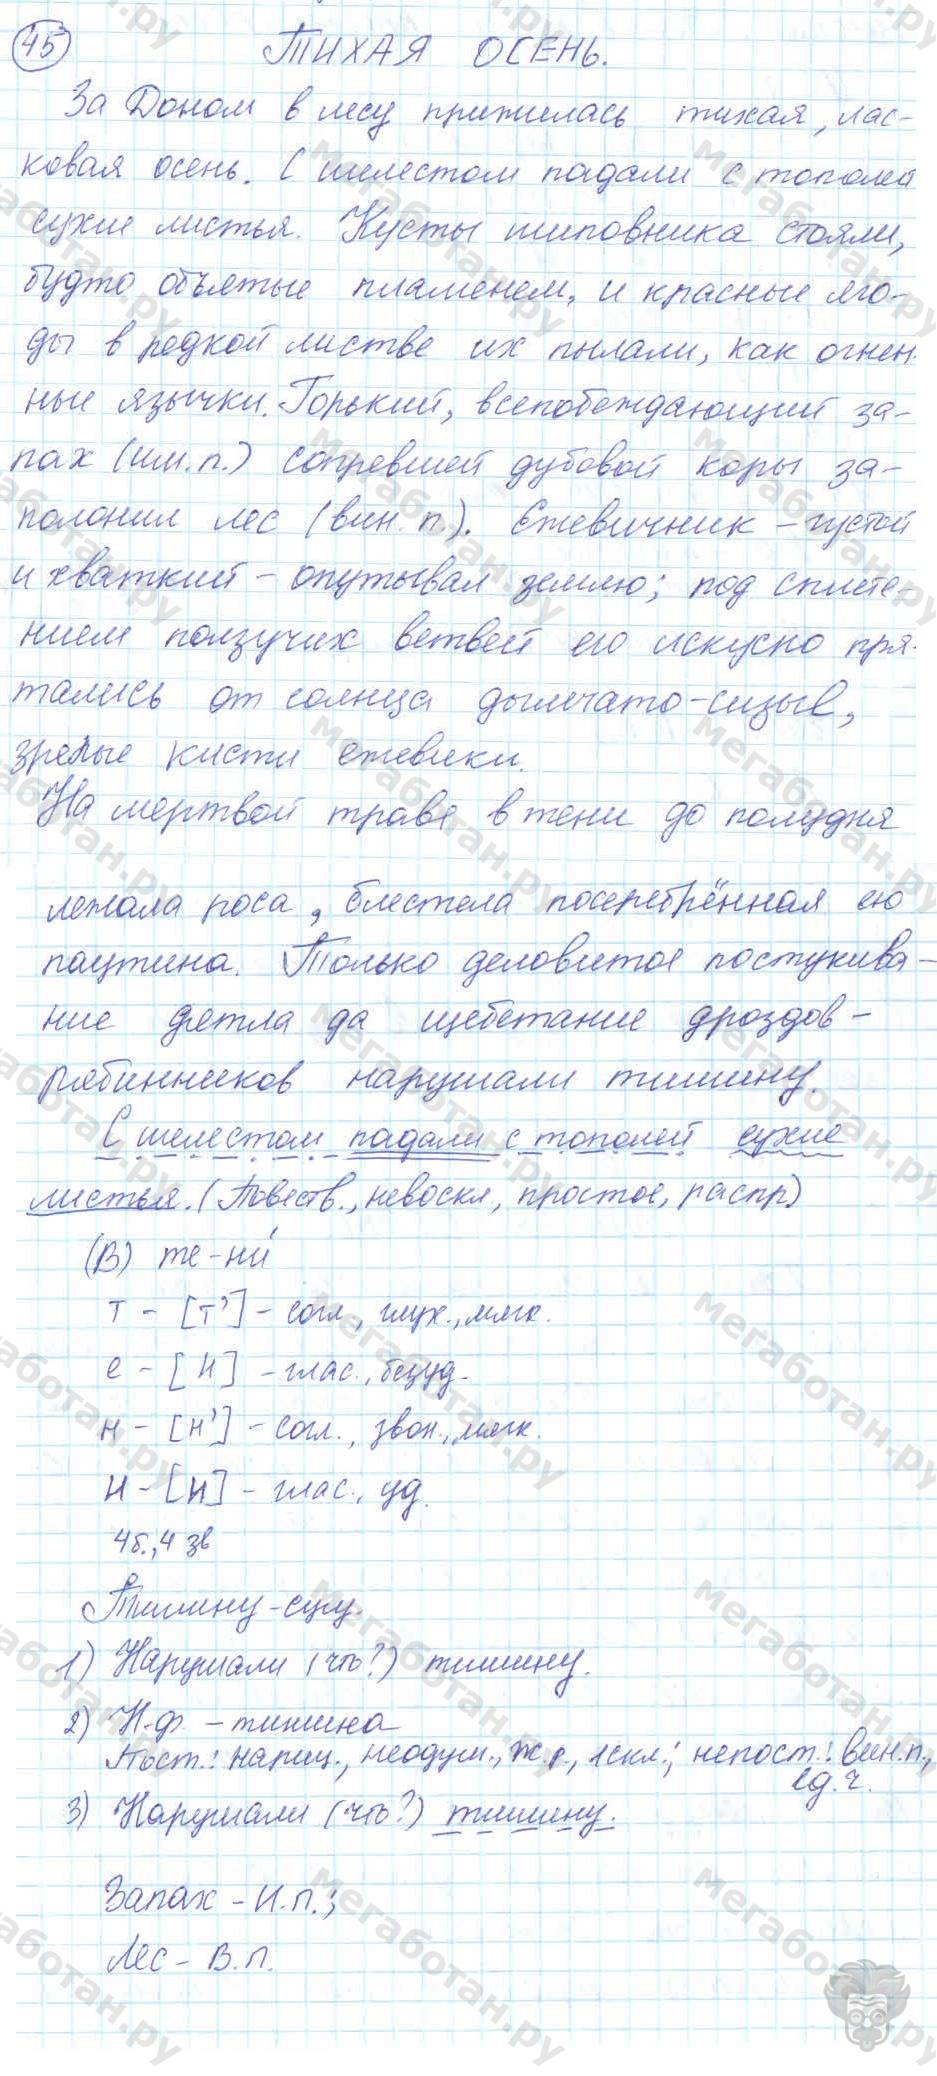 45 ТИХАЯ ОСЕНЬ.
За Доном в лесу прижилась тихая, лас-
ковая осень. С шелестом падали с тополей
сухие листья. Кусты шиповника стояли,
будто объятые пламенем, и красные яго-
ды в редкой листве их пылали, как огнен-
ные язычки. Горький, всепобеждающий за-
пах (им. п.) сопревшей дубовой коры за-
полонил лес (вин. п.). Ежевичник - густой
и хваткий - опутывал землю; под сплете-
нием ползучих ветвей его искусно пря-
тались от солнца дымчато-сизые,
зрелые кисти ежевики.
На мертвой траве в тени до полудня
лежала роса, блестела посеребрённая ею
паутина. Только деловитое постукива-
ние дятла да щебетание дроздов-
рябинников нарушали тишину.
С шелестом падали с тополей сухие
листья. (Повеств., невоскл., простое, распр.)
(В) те-ни́
т - [т'] - согл., глух., мягк.
е - [и] - глас., безуд.
н - [н'] - согл., звон., мягк.
и - [и] - глас., уд.
4б., 4 зв
Тишину - сущ.
1) Нарушали (что?) тишину.
2) Н.ф. - тишина
Пост.: нариц., неодуш., ж.р., 1скл.; непост.: вин.п.,
ед.ч.
3) Нарушали (что?) тишину.
Запах - И.П.;
Лес - В.П.
мегаботан.ру